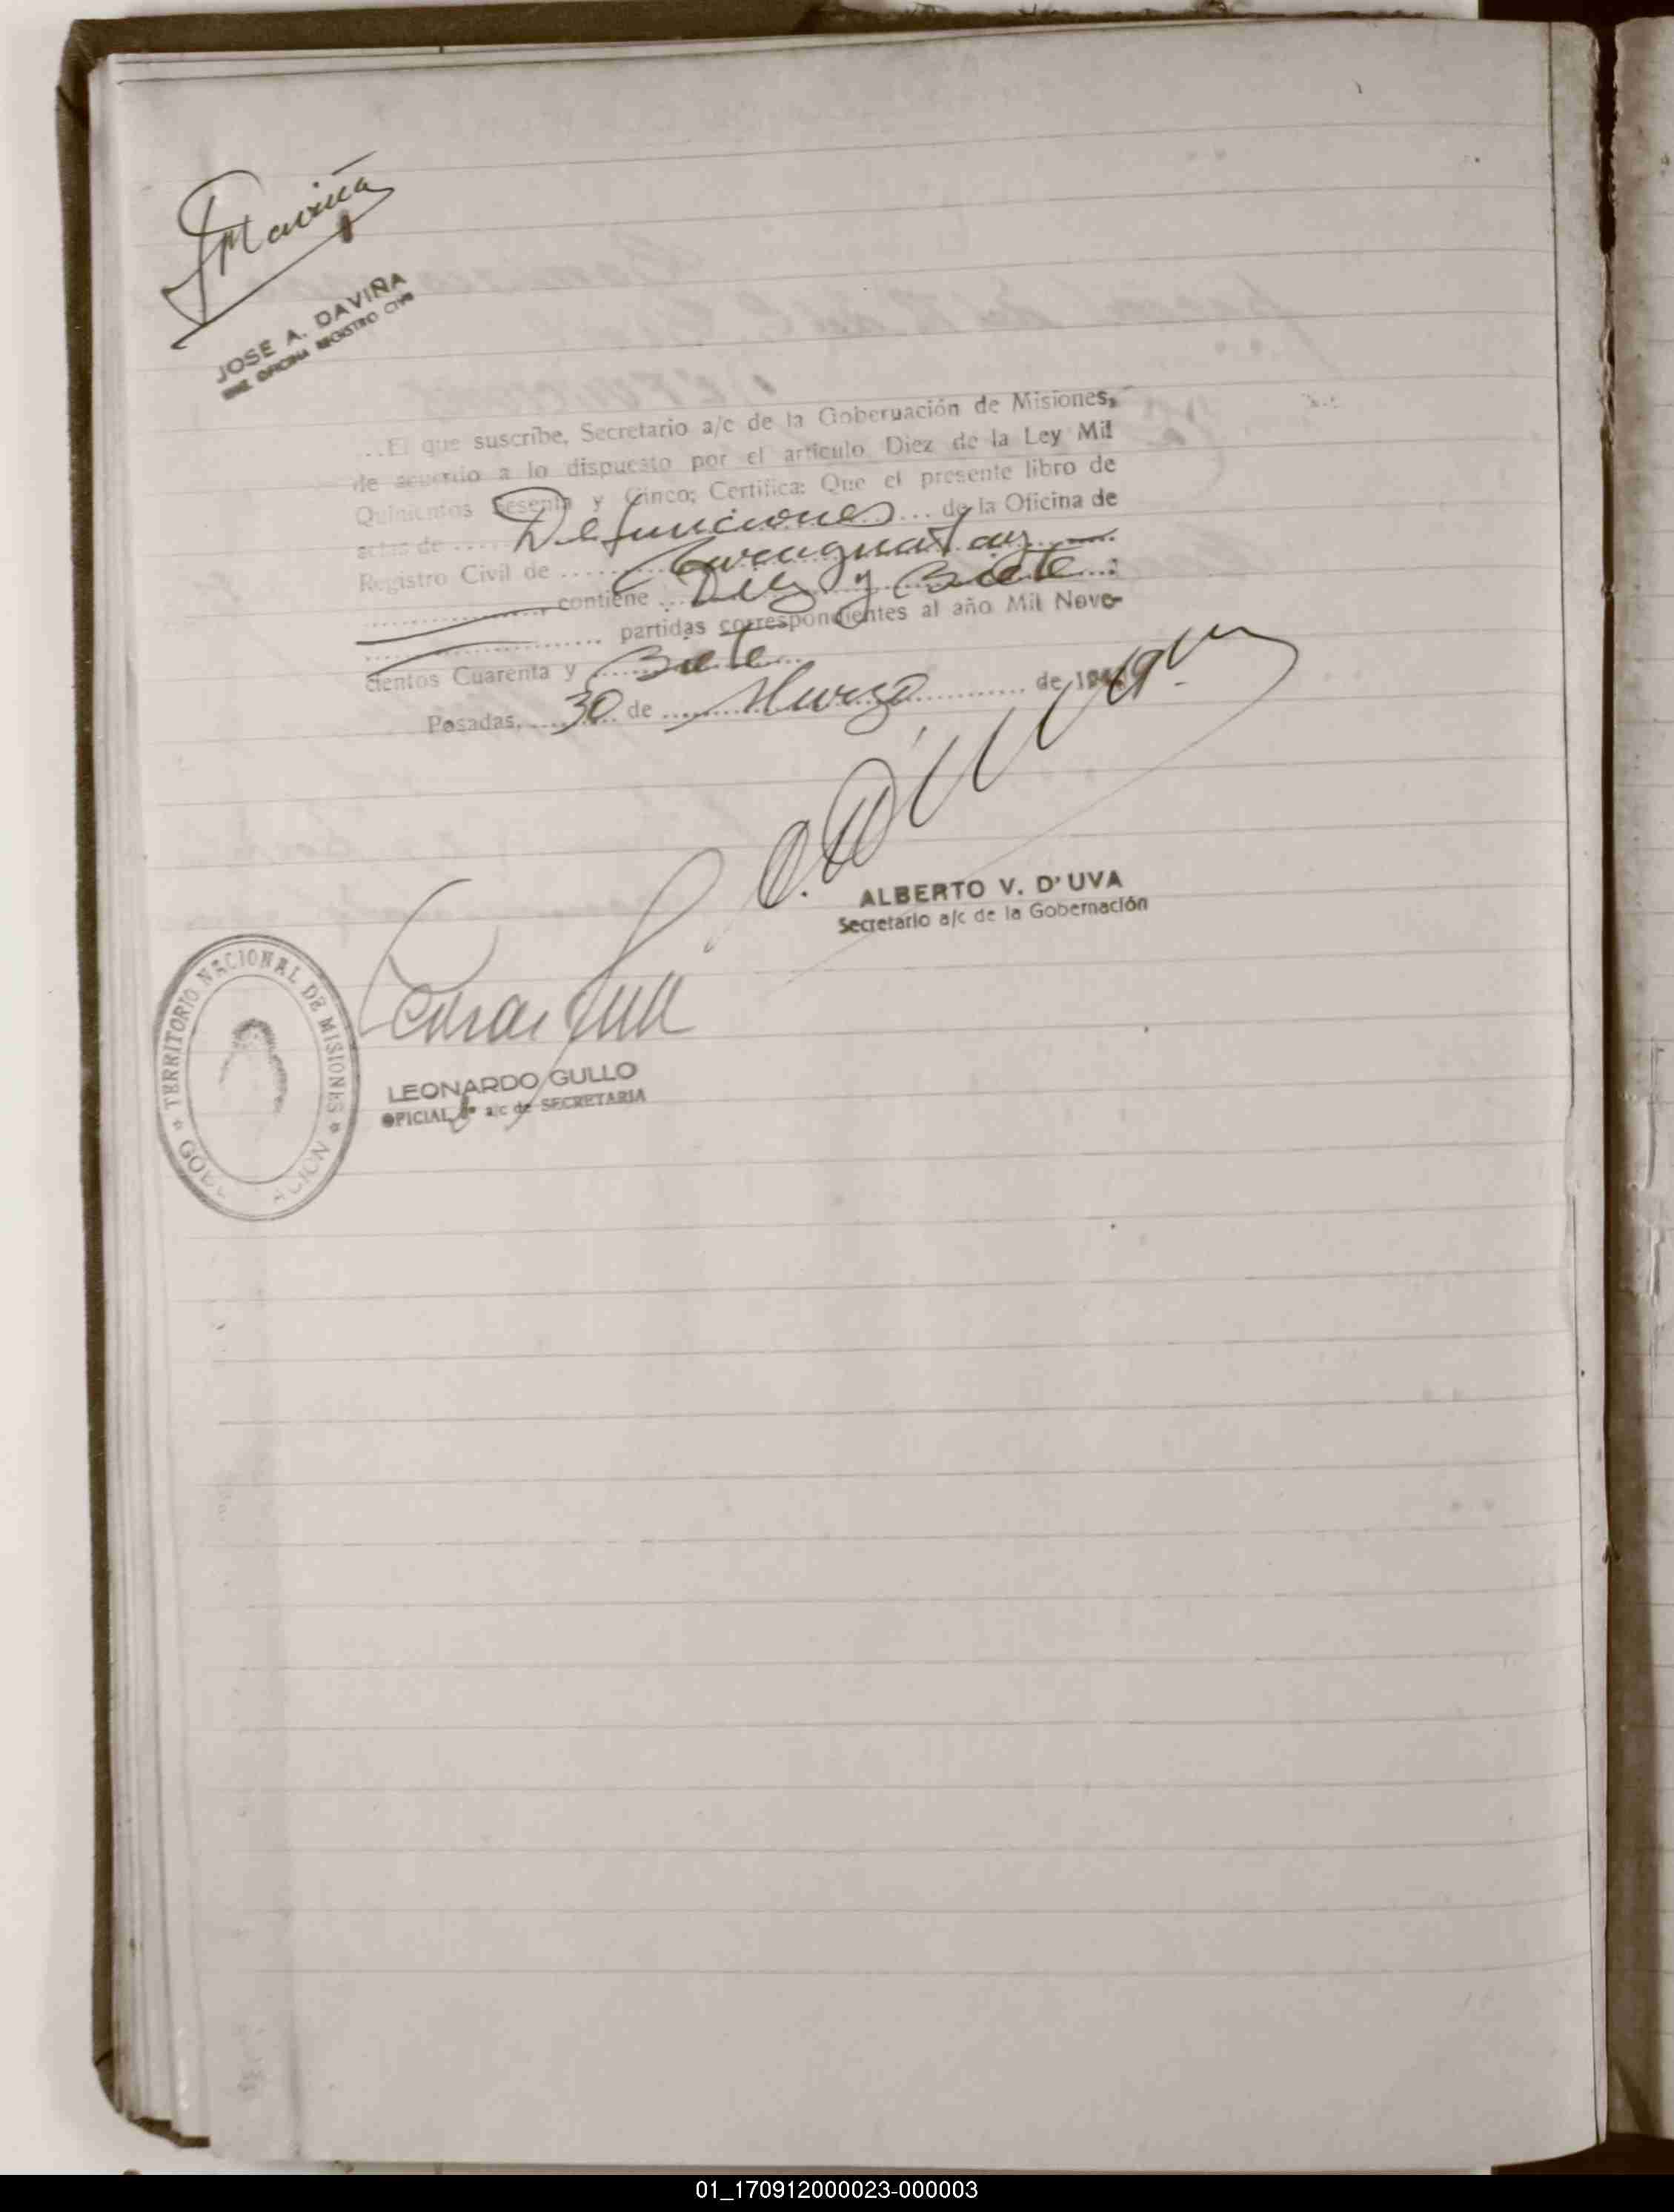 JOSE A. DAVIÑA
OFICINA REGISTRO CIVIL
...El que suscribe, Secretario a/c de la Gobernación de Misiones,
de acuerdo a lo dispuesto por el artículo Diez de la Ley Mil
Quinientos Sesenta y Cinco; Certifica: Que el presente libro de
actas de .... Defunciones ... de la Oficina de
Registro Civil de ...... Caraguatay
......, contiene ... Diez y Siete ...:
...... partidas correspondientes al año Mil Nove-
cientos Cuarenta y Siete
Posadas, 30 de Marzo de 194
ALBERTO V. D'UVA
Secretario a/c de la Gobernación
TERRITORIO NACIONAL DE MISIONES
LEONARDO GULLO
OFICIAL a/c de SECRETARIA
01_170912000023-000003